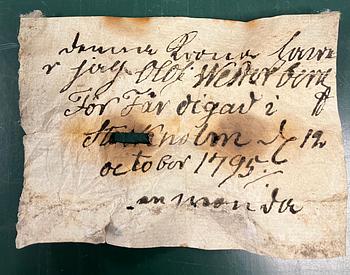 denna Krona hawe
r jag Olof Westerberg
För Färdigad i
Stockholm d 12
october 1795
en monda